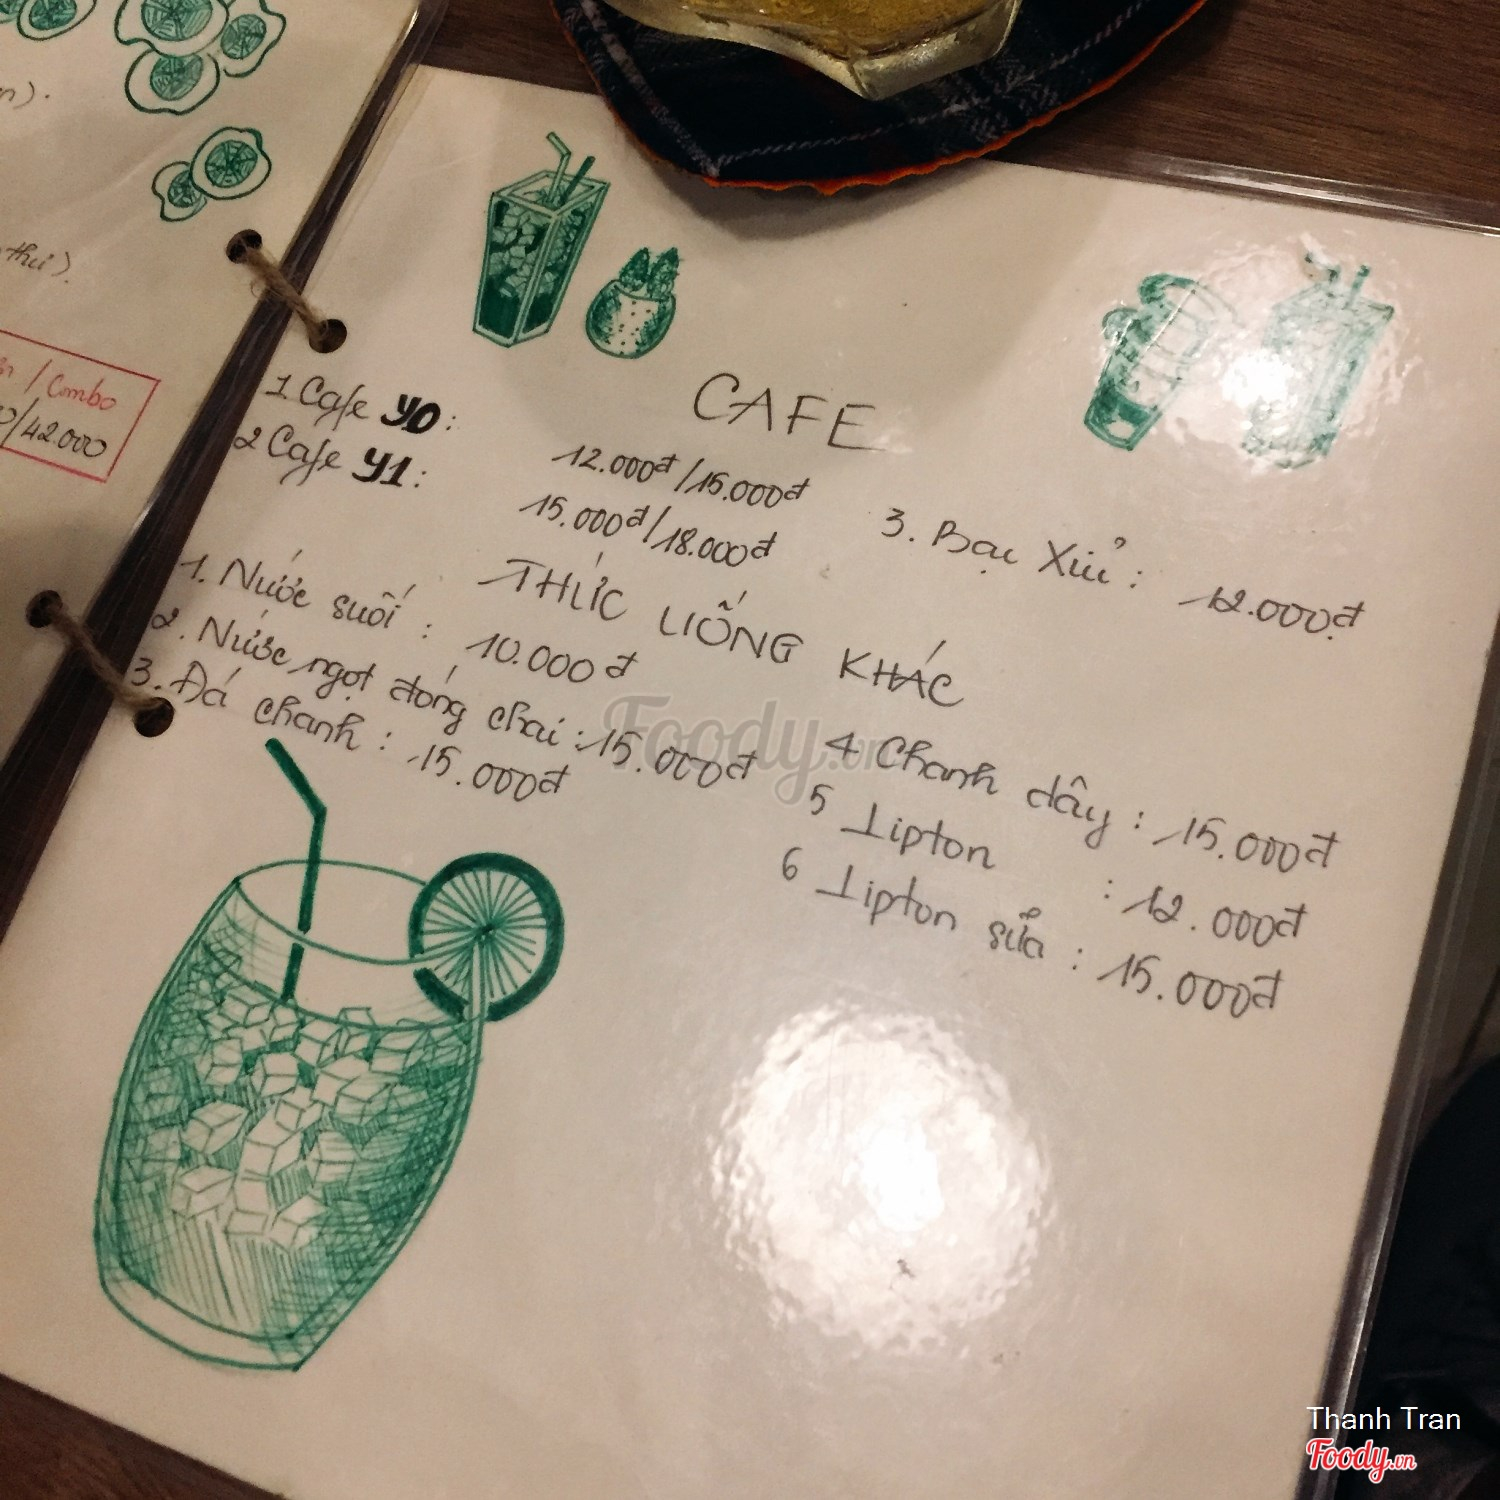 thui).
/ Combo
/42.000
CAFE
1 Cafe y0: 12.000đ/15.000đ
2 Cafe y1: 15.000đ/18.000đ
3. Bạc Xỉu: 12.000đ
THỨC UỐNG KHÁC
1. Nước suối: 10.000đ
2. Nước ngọt đóng chai: 15.000đ
3. Đá chanh: 15.000đ
4 Chanh dây: 15.000đ
5 Lipton: 12.000đ
6 Lipton sữa: 15.000đ
Foody.vn
Thanh Tran
Foody.vn